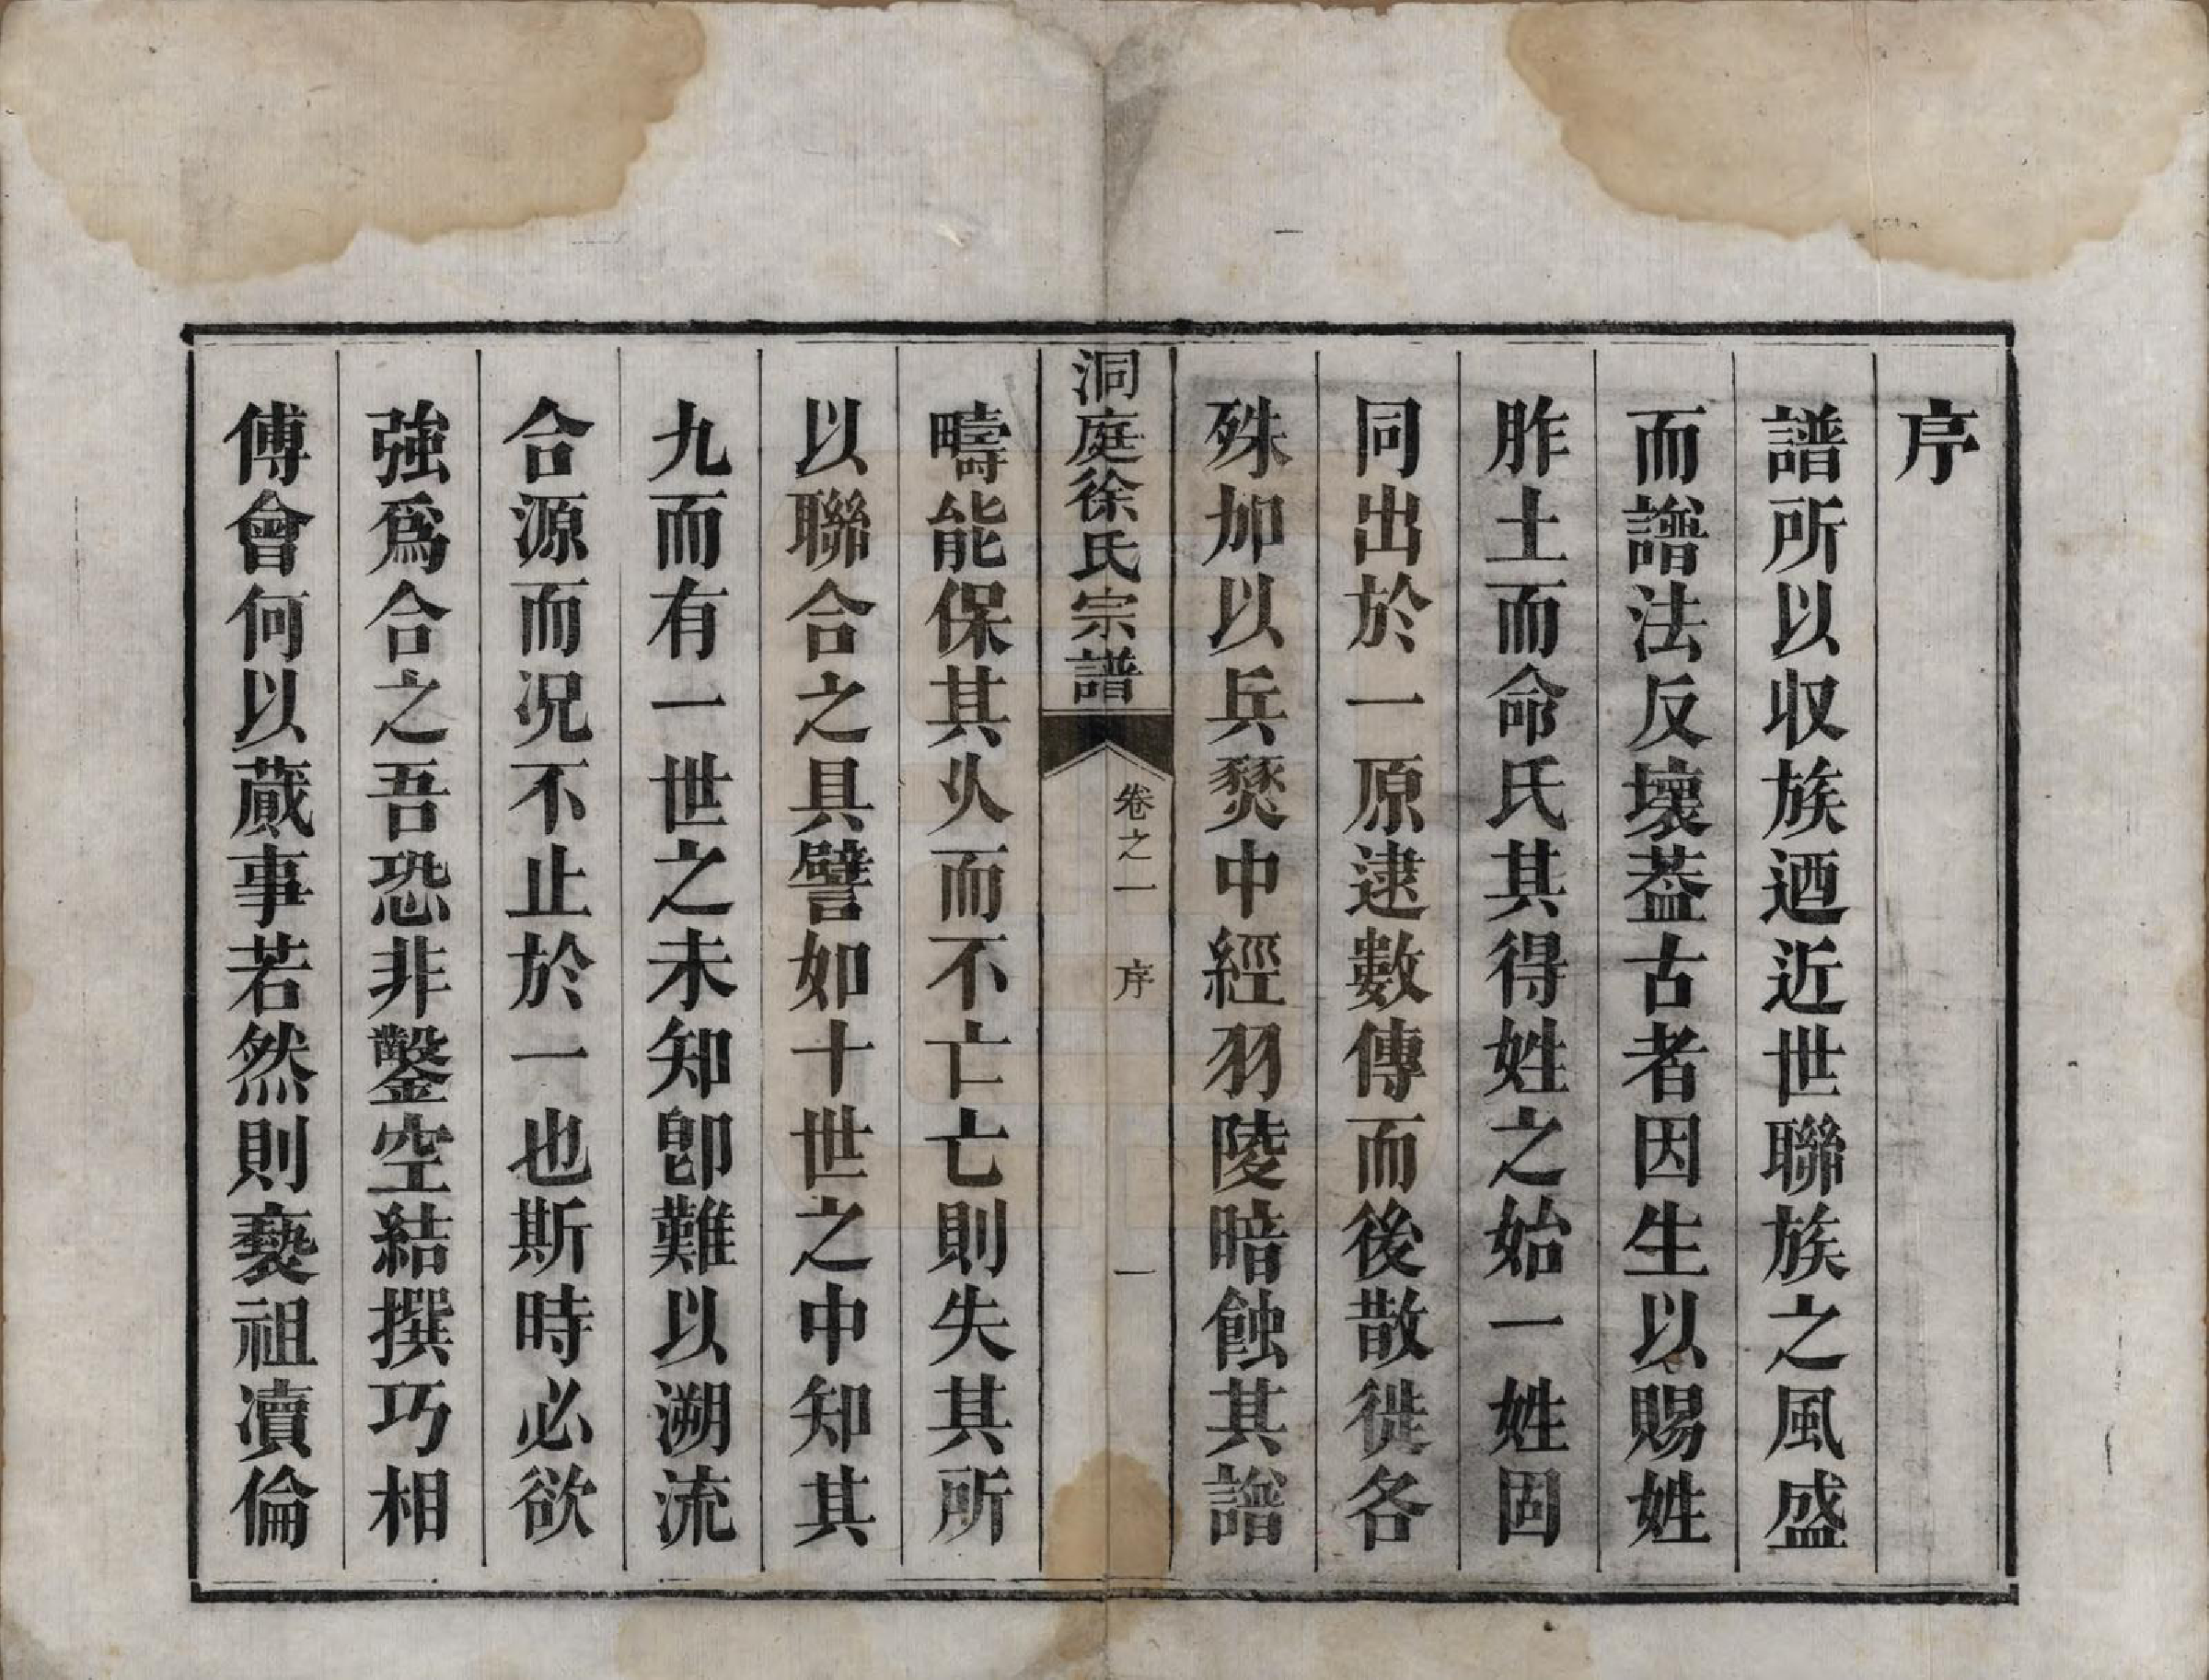 序
譜所以収族廼近世聯族之風盛
而譜法反壞葢古者因生以賜姓
胙土而命氏其得姓之始一姓固
同出於一原逮數傳而後散徙各
殊加以兵燹中經羽陵暗蝕其譜
洞庭徐氏宗譜
卷之一 序 一
疇能保其火而不亡亡則失其所
以聯合之具譬如十世之中知其
九而有一世之未知卽難以溯流
合源而况不止於一也斯時必欲
強爲合之吾恐非鑿空結撰巧相
傅會何以蕆事若然則褻祖瀆倫